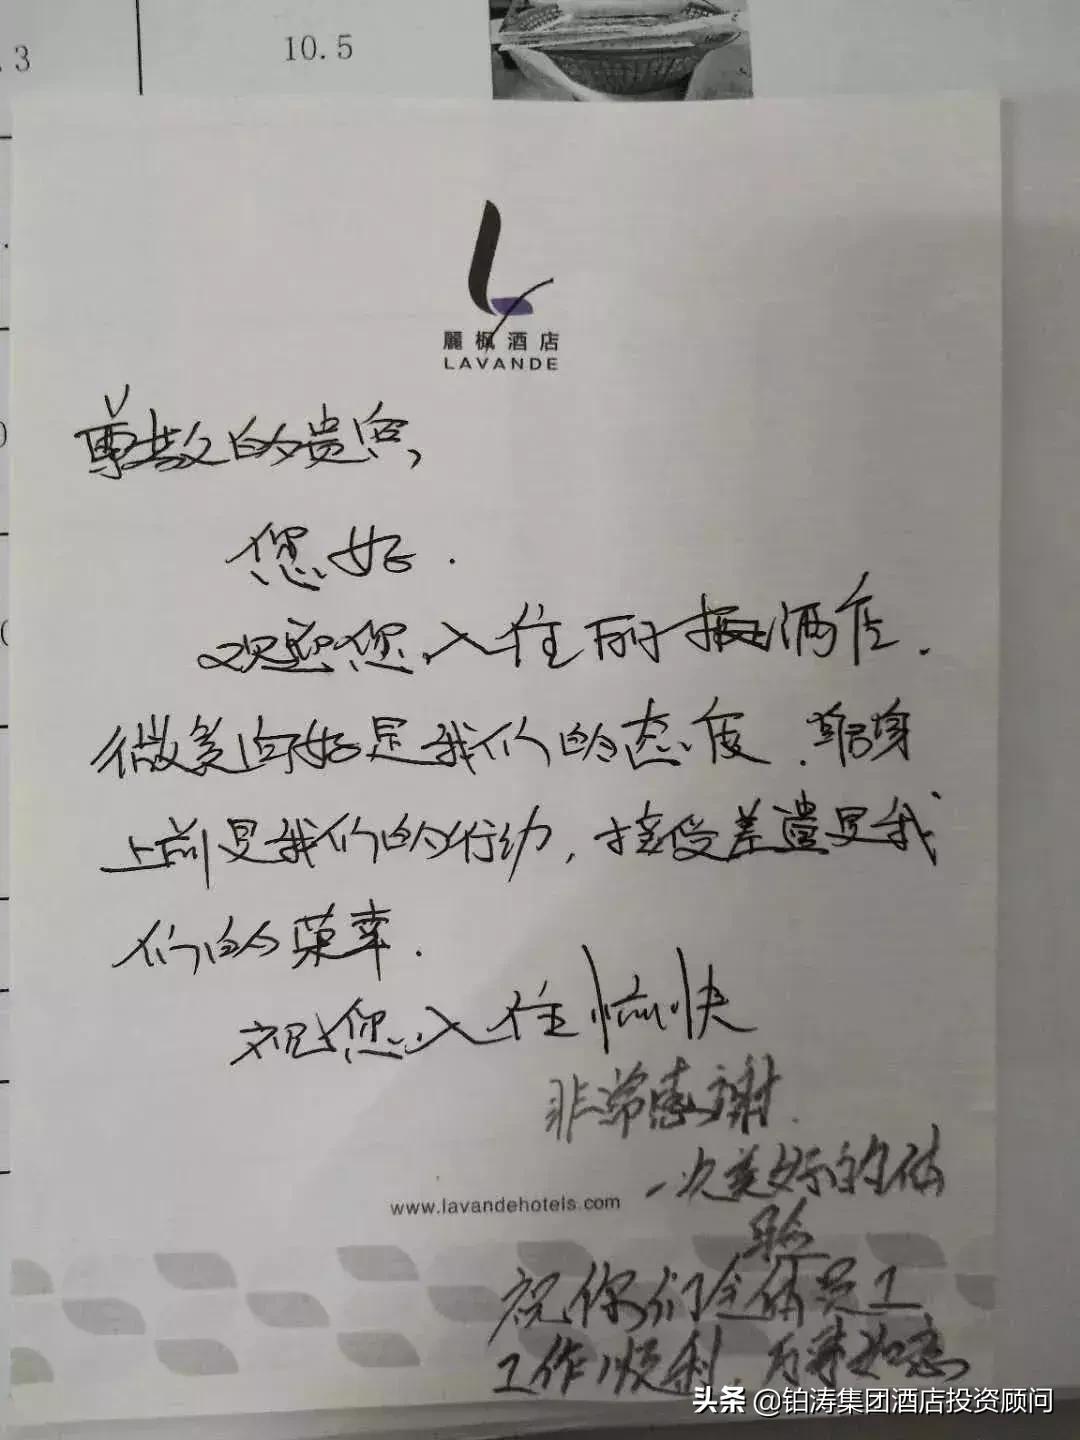 .3
10.5
麗枫酒店
LAVANDE
尊敬的贵宾,
您好.
欢迎您入住丽枫酒店.
微笑问好是我们的态度.躬身
上前是我们的行动,接受差遣是我
们的荣幸.
祝您入住愉快
非常感谢.
一次美好的体
验
www.lavandehotels.com
祝你们全体员工
工作顺利,万事如意
头条 @铂涛集团酒店投资顾问